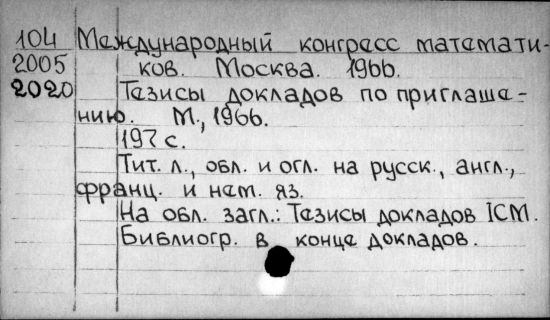 104 Международный конгресс математи-
2005 ков. Москва. 1966.
2020 Тезисы докладов по приглаше-
нию. М., 1966.
197 с.
Тит. л., обл. и огл. на русск., англ.,
франц. и нем. яз.
На обл. загл.: Тезисы докладов ICM.
Библиогр. в конце докладов.